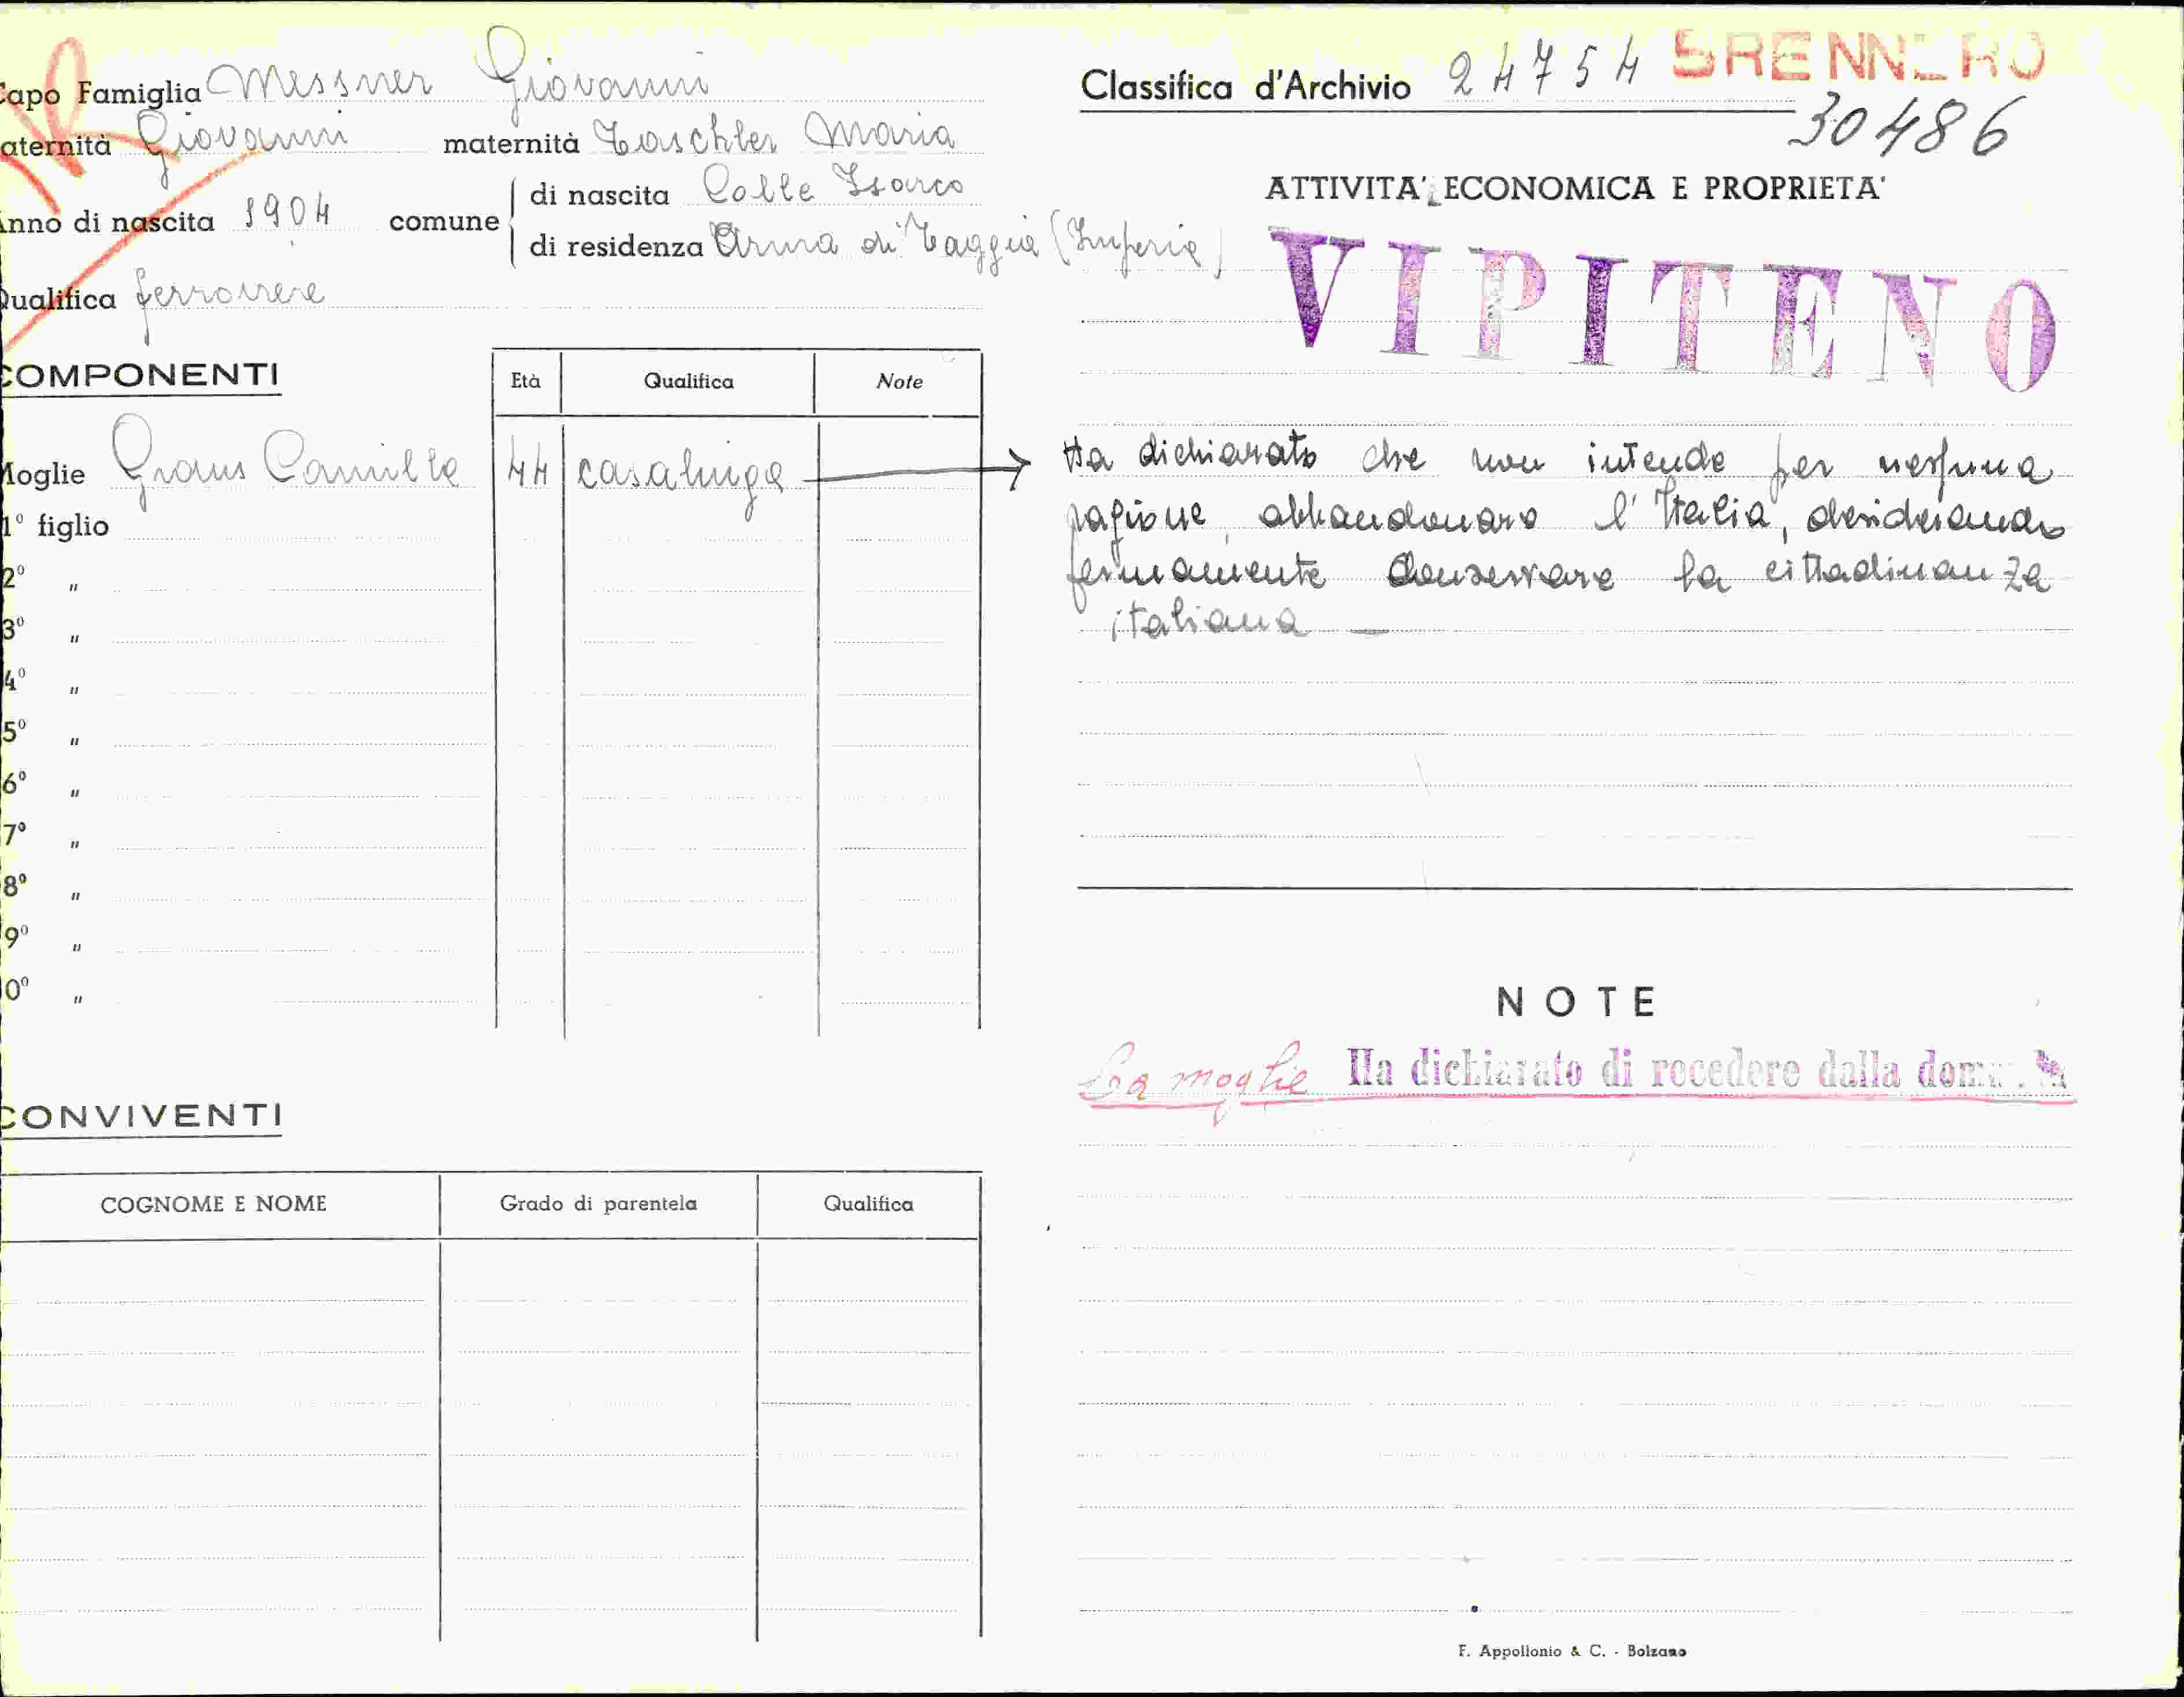 Capo Famiglia Messner Giovanni
aternità Giovanni maternità Taschler Maria
Anno di nascita 1904 comune di nascita Colle Isarco
di residenza Arma di Taggia (Imperia)
Qualifica ferroviere
COMPONENTI
Età Qualifica Note
Moglie Graus Camilla 44 casalinga
1° figlio
2° "
3° "
4° "
5° "
6° "
7° "
8° "
9° "
0° "
CONVIVENTI
COGNOME E NOME Grado di parentela Qualifica
Classifica d'Archivio 24754 BRENNERO
30486
ATTIVITA' ECONOMICA E PROPRIETA'
VIPITENO
Ha dichiarato che non intende per nessuna
ragione abbandonare l'Italia, desiderando
fermamente conservare la cittadinanza
italiana —
NOTE
La moglie Ha dichiarato di recedere dalla
F. Appollonio & C. - Bolzano